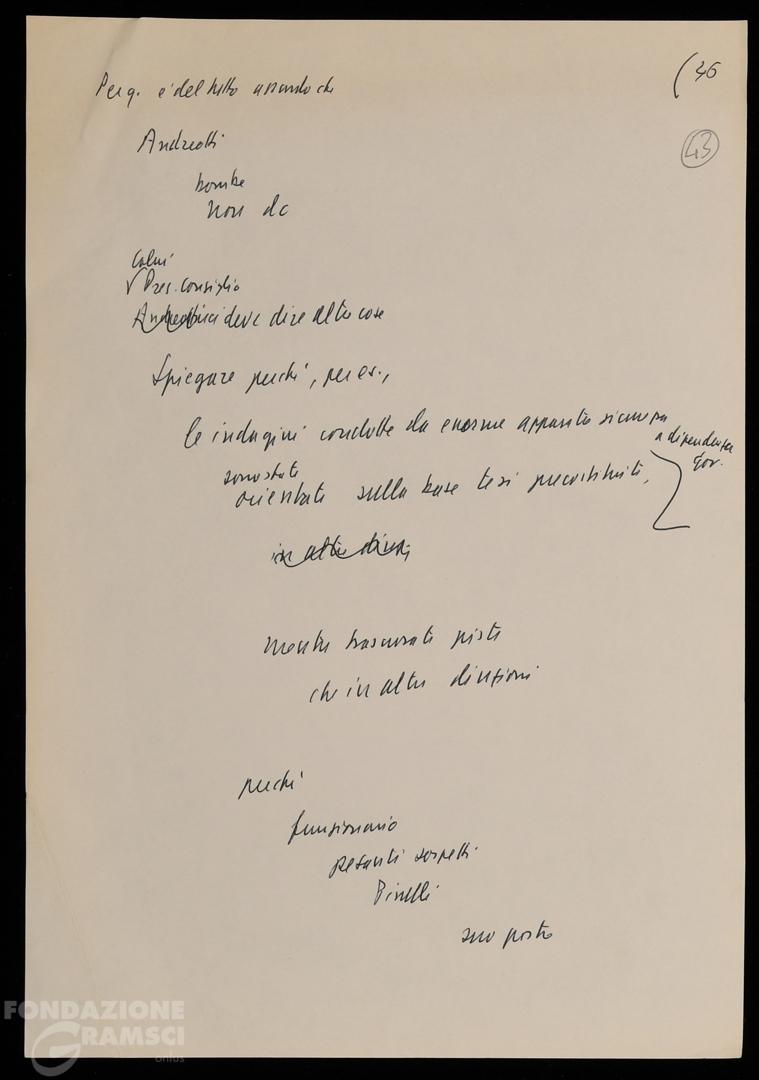 (36
43
Per q. è del tutto assurdo che
Andreotti
bombe
non dc
Colui
V Pres. Consiglio
Andreotti ci deve dire altre cose
Spiegare perché, per es.,
le indagini condotte da enorme apparato sicurezza
a dipendenza
Gov.
sono state
orientate sulla base tesi precostituite,
in altre direz.
mentre trascurate piste
che in altre direzioni
perché
funzionario
pesanti sospetti
Pinelli
suo posto
FONDAZIONE
GRAMSCI
onlus